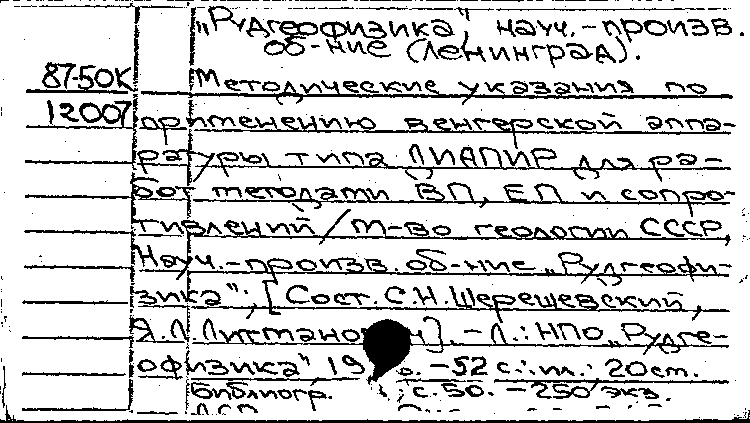 „Рудгеофизика", науч.-произв.
об-ние (Ленинград).
87-50К Методические указания по
12007 применению венгерской аппа-
ратуры типа ДИАПИР для ра-
бот методами ВП, ЕП и сопро-
тивлений / М-во геологии СССР,
Науч.-произв. об-ние „Рудгеофи-
зика"; [Сост. С.Н. Шерешевский,
Я.Л. ]. – Л.: НПО „Рудге-
офизика" 19 . – 52 с.: ил.; 20 см.
Библиогр. с. 50. – 250 экз.